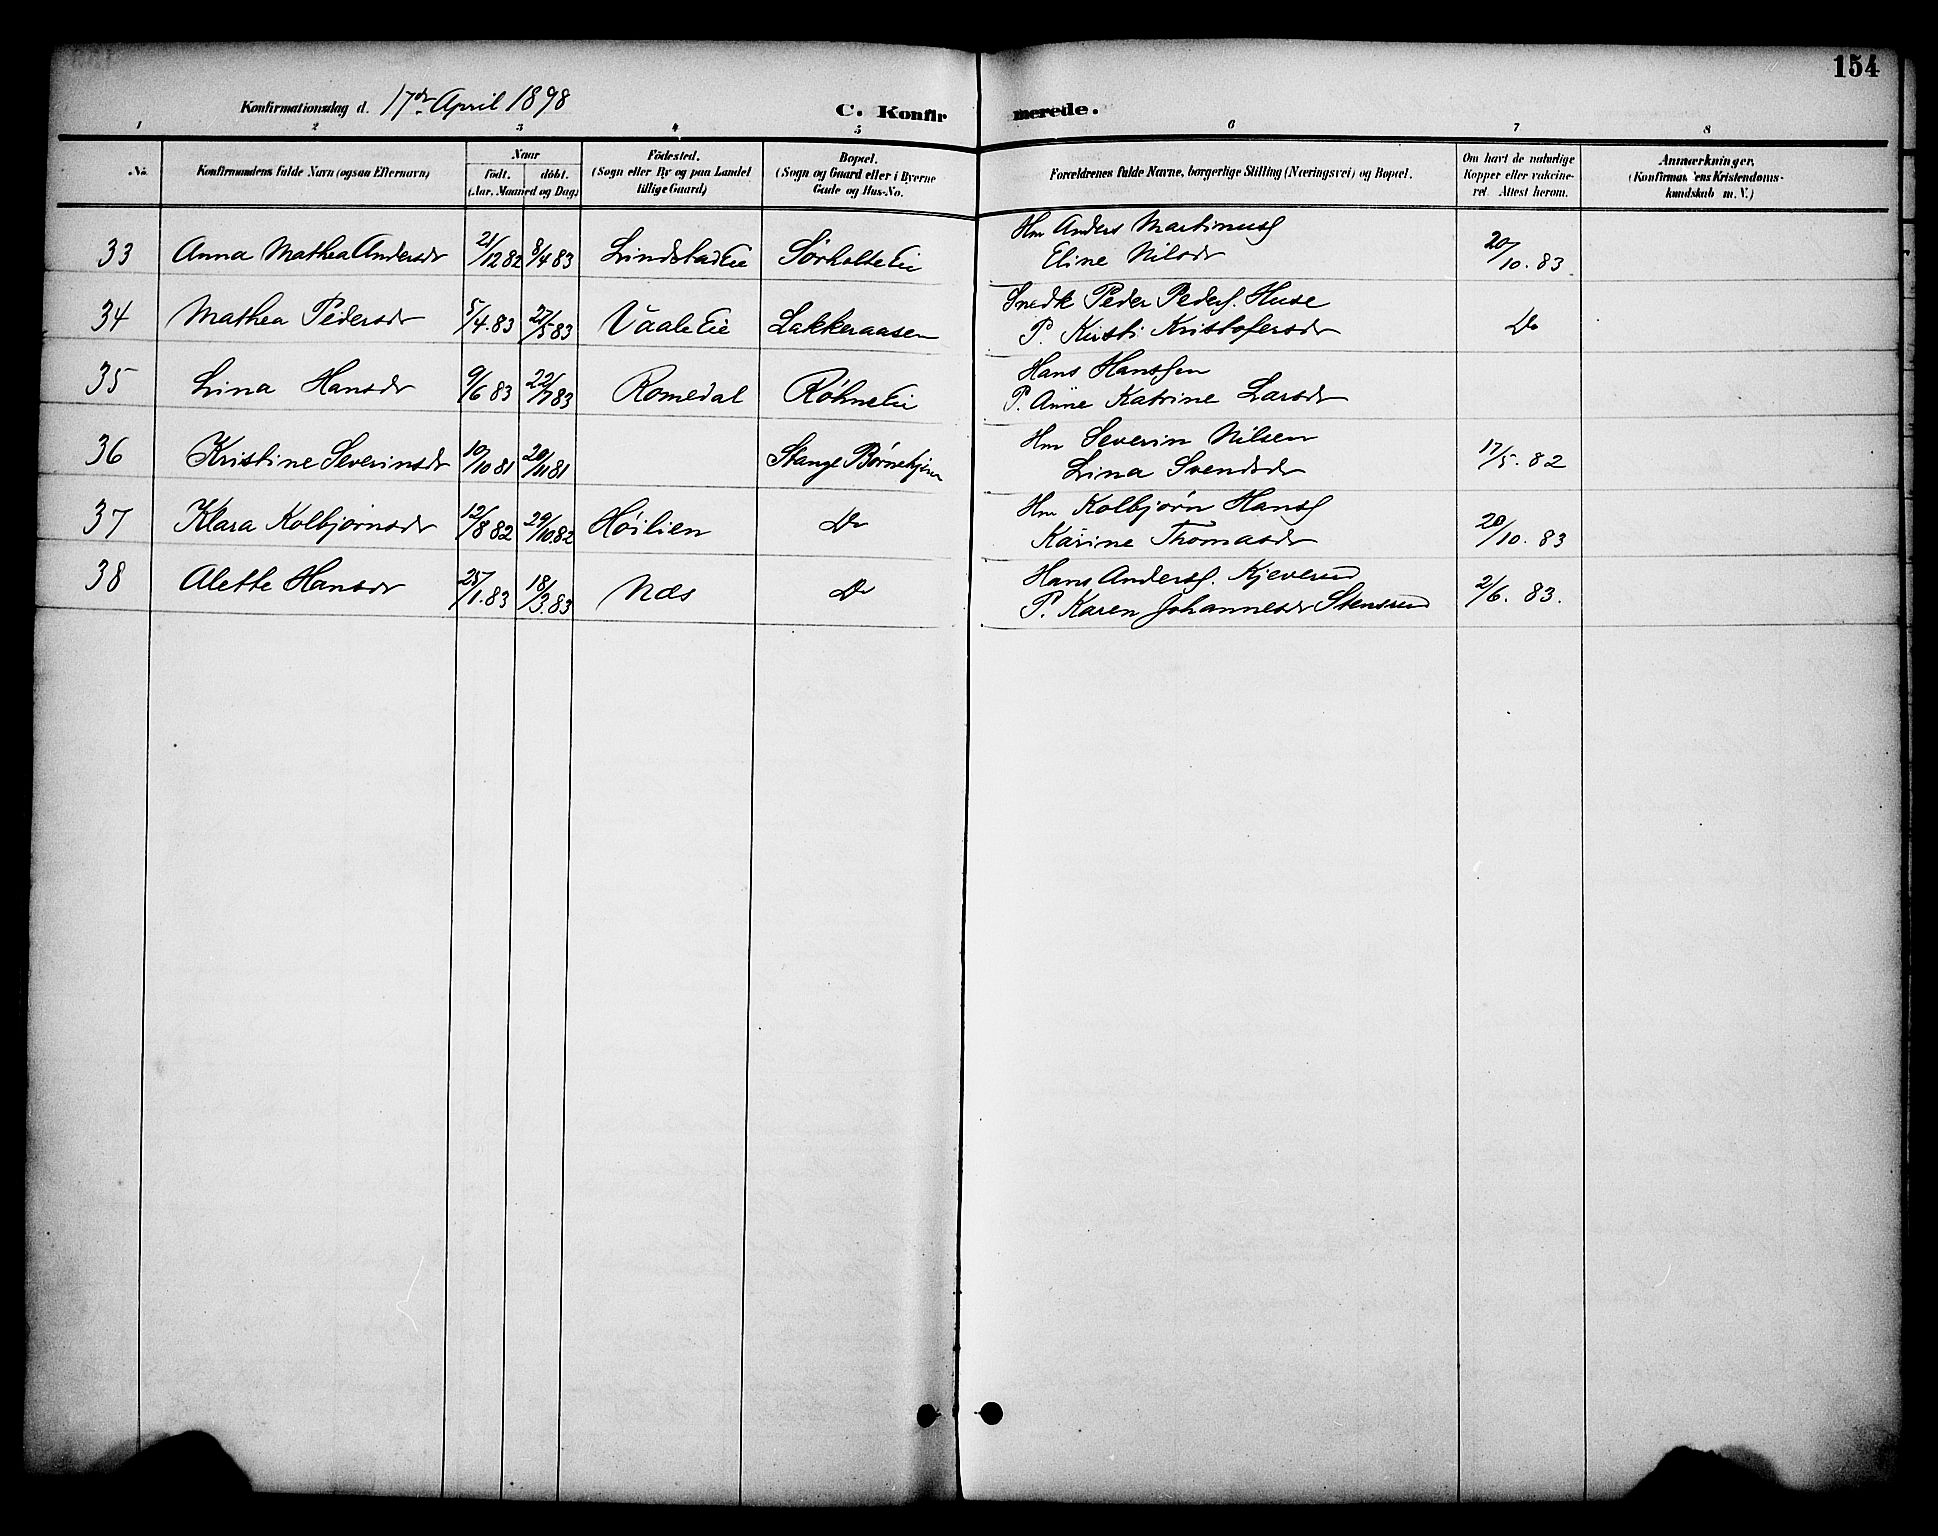 154
Konfirmationsdag d. 17de April 1898
C. Konfirmerede.
1 2 3 4 5 6 7 8
No. Konfirmandens fulde Navn (ogsaa Efternavn) Naar födt. döbt. (Aar, Maaned og Dag) Födested. (Sogn eller By og paa Landet tillige Gaard) Bopæl. (Sogn og Gaard eller i Byerne Gade og Hus-No. Forældrenes fulde Navne, borgerlige Stilling (Næringsvei) og Bopæl. Om havt de naturlige Kopper eller vakcineret. Attest herom. Anmærkninger. (Konfirmandens Kristendomskundskab m. V.)
33 Anna Mathea Andersdr 21/12 82 8/4 83 Lindstad Eie Sørholte Eie Hm Anders Martinus
Eline Nilsdr 20/10. 83
34 Mathea Pedersdr 5/4. 83 27/5 83 Vaale Eie Lakkeraasen Snedk Peder Peders. Huse
P. Kirsti Kristofersdr Do
35 Lina Hansdr 9/6 83 22/7 83 Romedal Røhne Eie Hans Hanssen
P. Anne Katrine Larsdr
36 Kristine Severinsdr 10/10 81 20/11 81 Stange Børnehjem Hm Severin Nilsen
Lina Svendsdr 17/5. 82
37 Klara Kolbjørnsdr 12/8 82 29/10. 82 Høilien Do Hm Kolbjørn Hans
Karine Thomasdr 20/10. 83
38 Alette Hansdr 25/1. 83 18/3. 83 Næs Do Hans Anders. Kjeverud
P. Karen Johannesdr Stensrud 2/6. 83.